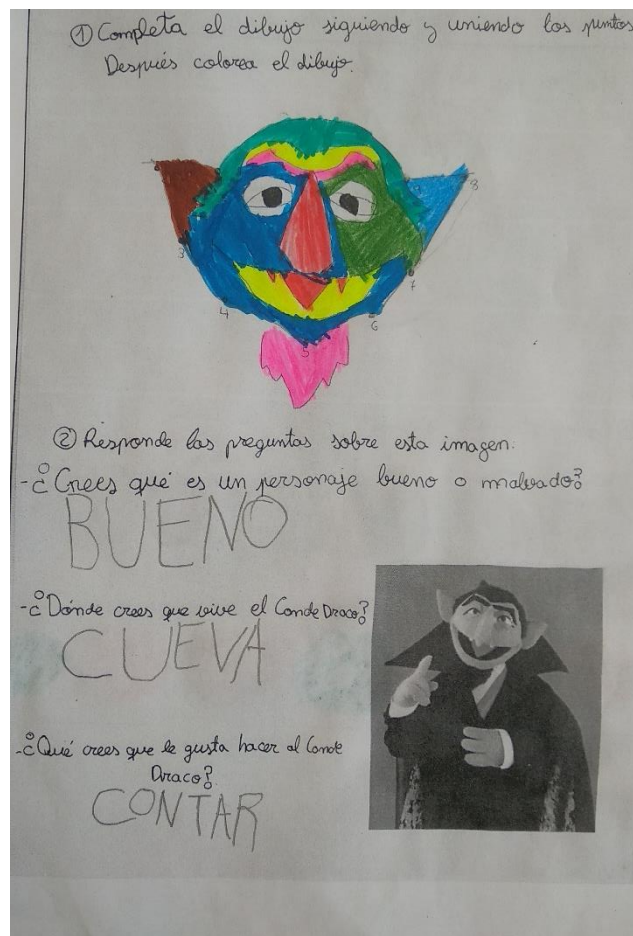 ① Completa el dibujo siguiendo y uniendo los puntos
Después colorea el dibujo.
8
3
7
4
6
5
② Responde las preguntas sobre esta imagen.
- ¿Crees qué es un personaje bueno o malvado?
BUENO
- ¿Dónde crees que vive el Conde Draco?
CUEVA
- ¿Qué crees que le gusta hacer al Conde
Draco?
CONTAR